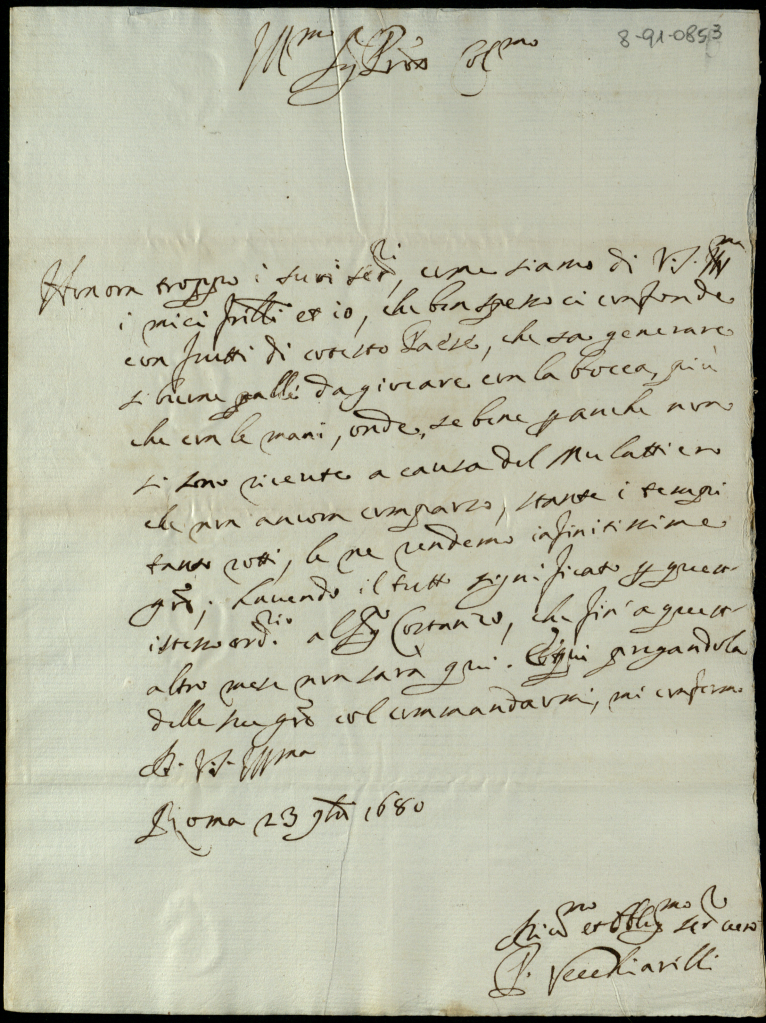 8-91-0853
Ill.mo Sig.r Pron Col.mo
Honora troppo i suoi ser.ri, come siamo di V.S. Ill.ma
i miei fr̃lli et io, che ben spesso ci confonde
con frutti di cotesto Paese, che sa generare
si buone palle da giocare con la bocca, più
che con le mani, onde, se bene p anche non
si sono riceute a causa del Mulattiero
che non ancora comparso, stante i tempi
tanto rotti, le ne rendemo infinitissime
grẽ; hauendo il tutto significato p quest
istesso ord.rio al Sig.r Costanzo, che fin' a quest
altro mese non sarà qui. E qui pregandola
delle sue grẽ col commandarmi, mi confermo
D. V.S. Ill.ma
Roma 23 9bre 1680
et Obblig.mo ser.r uero
P. Vecchiarelli